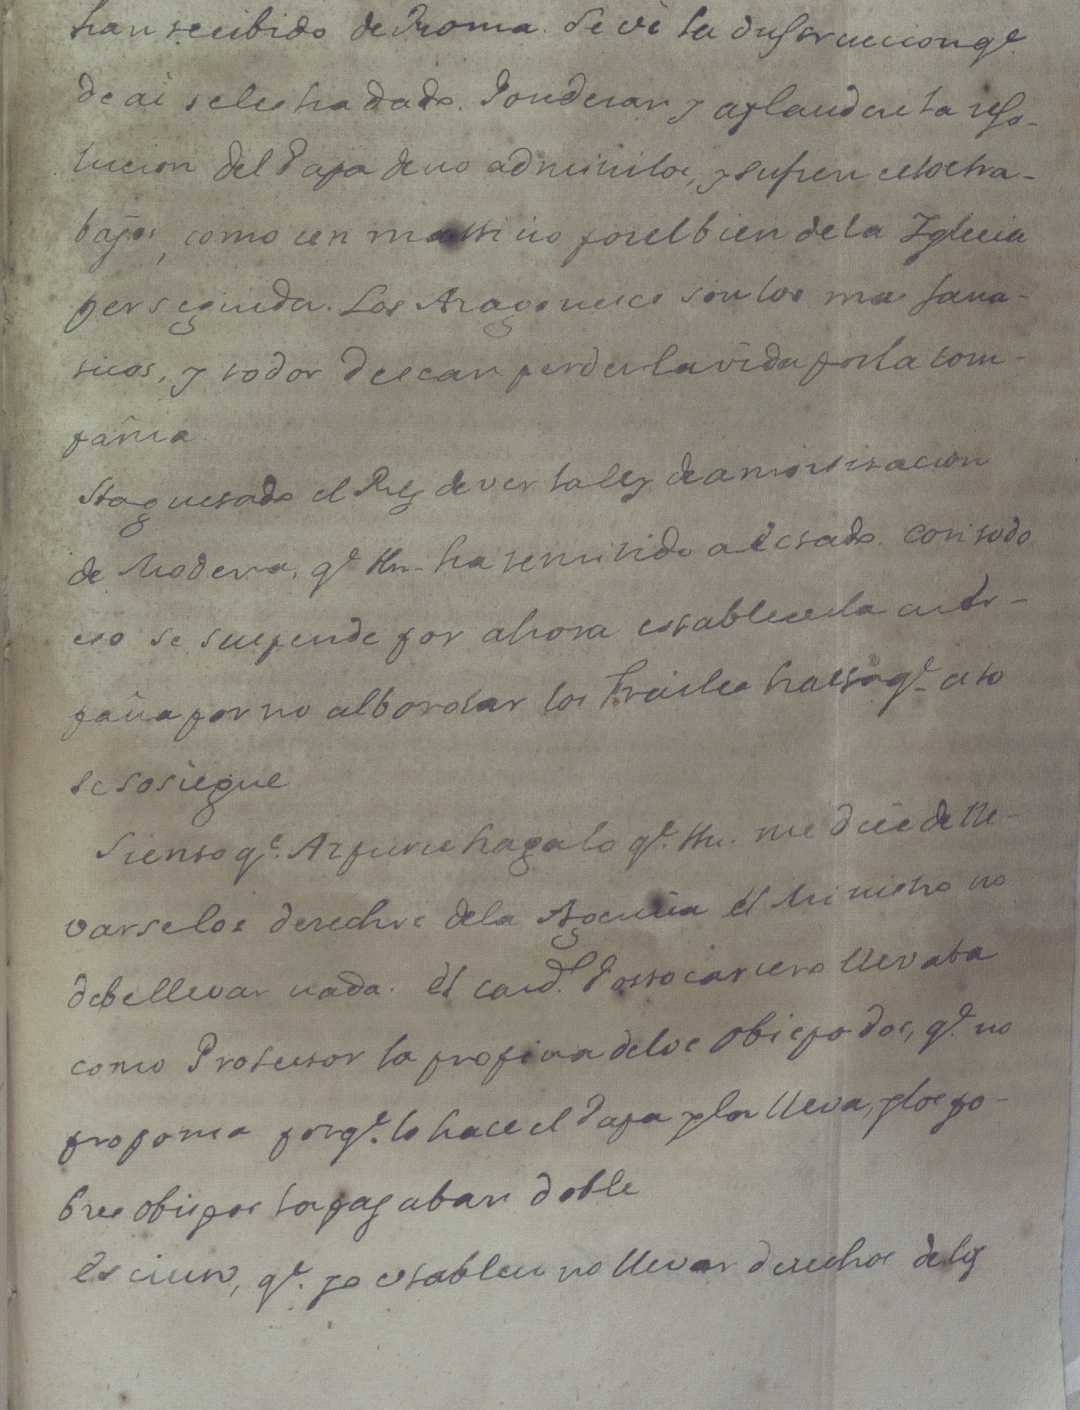 han recibido de Roma. Se vè la Ynstruccion q.e
de aì se les ha dado. Ponderan y aplauden la reso-
lucion del Papa de no admitirlos, y sufren estos tra-
bajos, como un martirio por el bien de la Iglesia
perseguida. Los Aragoneses son los mas fana-
ticos, y todos desean perder la vida por la com-
pañia
Ha gustado el Rey de ver la ley de amortisacion
de Modena, q.e Vm. ha remitido a Estado. Con todo
eso se suspende por ahora establecerla en Es-
paña por no alborotar los frailes hasta q.e esto
se sosiegue
Siento q.e Azpuru haga lo q.e Vm. me dice de lle-
varse los derechos de la Agencia El Ministro no
debe llevar nada. El Card.l Portocarrero llevaba
como Protector la propina de los Obispados, q.e no
proponia porq.e lo hace el Papa y los lleva, y los po-
bres obispos la pagaban doble
Es cierto, q.e yo establecì no llevar derechos de las